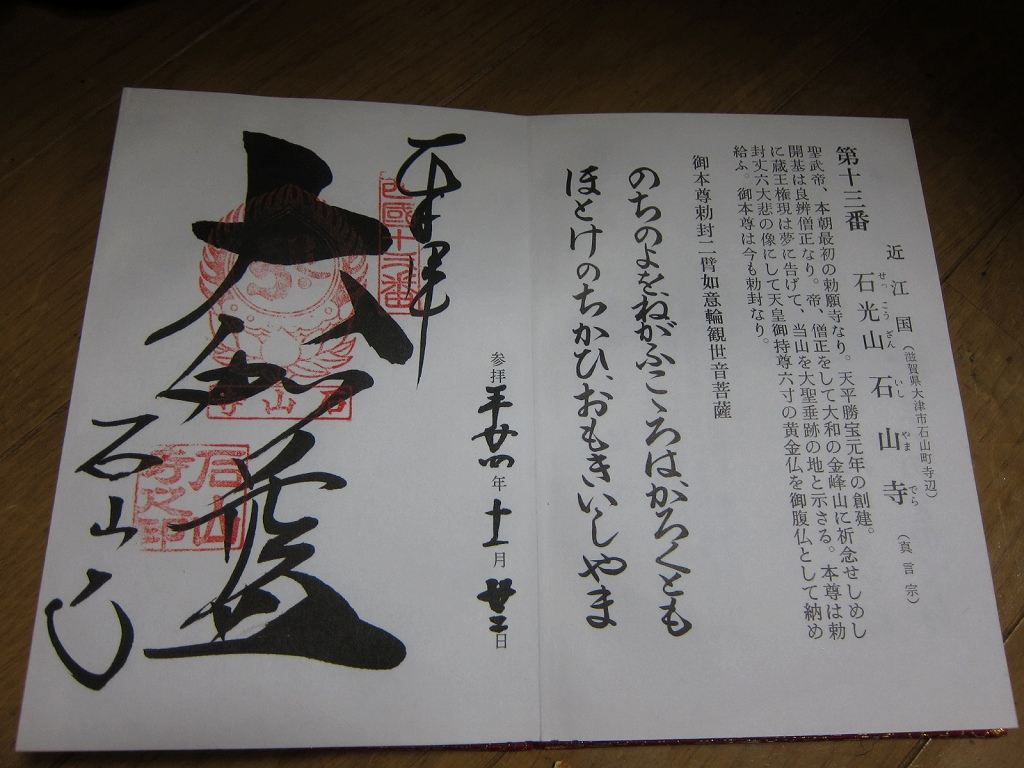 第十三番
近江国（滋賀県大津市石山町寺辺）
石光山 石山寺（真言宗）
せっこうざん いしやまでら
聖武帝、本朝最初の勅願寺なり。天平勝宝元年の創建。
開基は良辨僧正なり。帝、僧正をして大和の金峰山に祈念せしめし
に蔵王権現は夢に告げて、当山を大聖垂跡の地と示さる。本尊は勅
封丈六大悲の像にして天皇御持尊六寸の黄金仏を御腹仏として納め
給ふ。御本尊は今も勅封なり。
御本尊勅封二臂如意輪観世音菩薩
のちのよをねがふこゝろは、かろくとも
ほとけのちかひ、おもきいしやま
参拝 平廿四年十一月廿二日
奉拝
西國十三番
石山寺
石山寺之印
石山寺